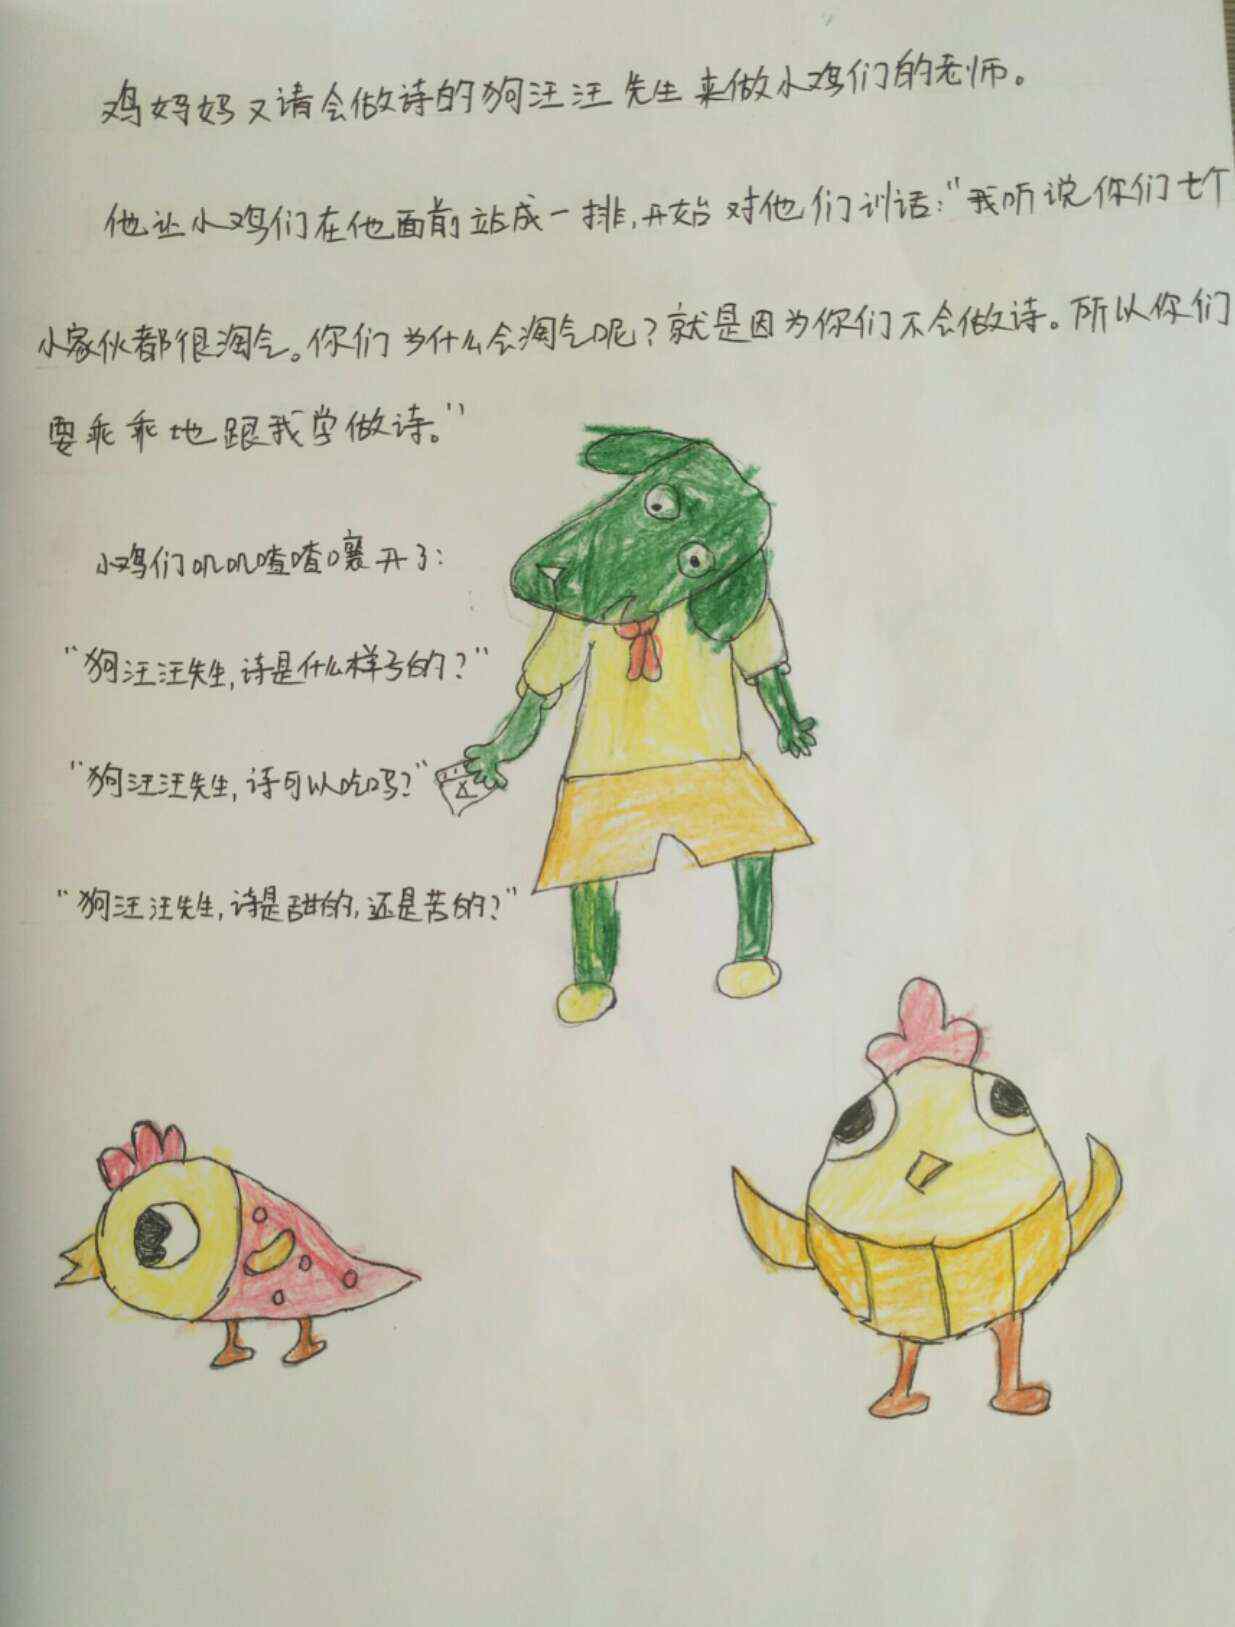 鸡妈妈又请会做诗的狗汪汪先生来做小鸡们的老师。
他让小鸡们在他面前站成一排,开始对他们训话:"我听说你们七个
小家伙都很淘气。你们为什么会淘气呢?就是因为你们不会做诗。所以你们
要乖乖地跟我学做诗。"
小鸡们叽叽喳喳嚷开了:
"狗汪汪先生,诗是什么样子的?"
"狗汪汪先生,诗可以吃吗?"
"狗汪汪先生,诗是甜的,还是苦的?"